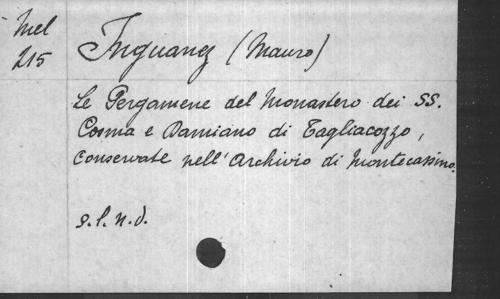 Mel
215
Inguanez (Mauro)
Le Pergamene del Monastero dei SS.
Cosma e Damiano di Tagliacozzo,
conservate nell'Archivio di Montecassino.
s.l.n.d.